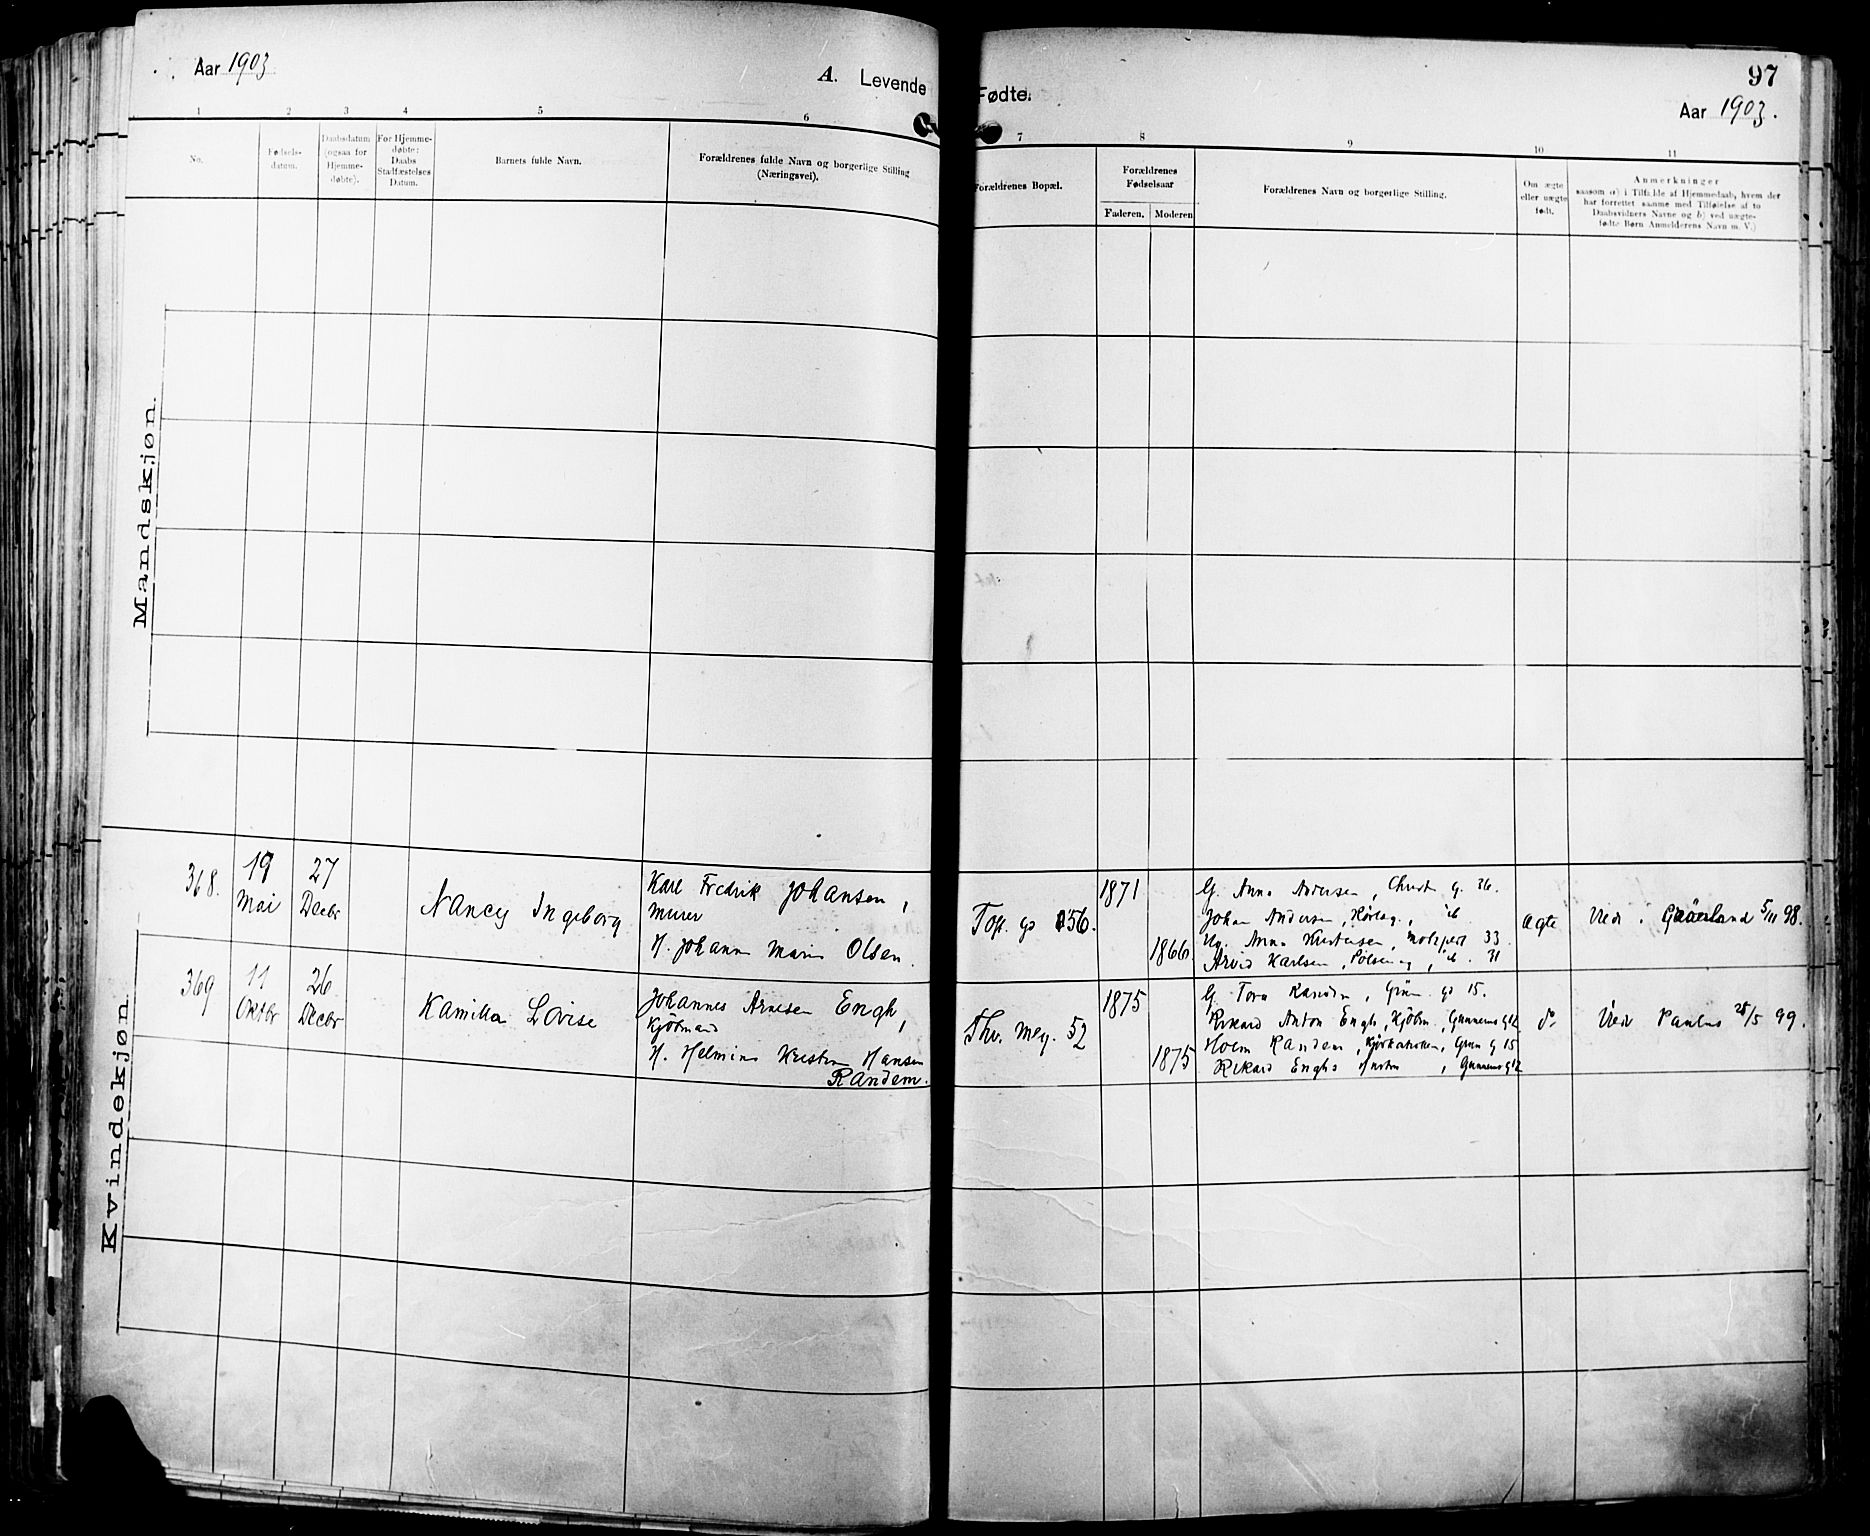 Aar 1903
A. Levende
Fødte.
97
Aar 1903.
1 2 3 4 5 6
7 8 9 10 11
No.
Fødsels-
datum.
Daabsdatum
(ogsaa for
Hjemme-
døbte).
For Hjemme-
døbte:
Daabs
Stadfæstelses
Datum.
Barnets fulde Navn.
Forældrenes fulde Navn og borgerlige Stilling
(Næringsvei).
Forældrenes Bopæl.
Forældrenes
Fødselsaar
Faderen. Moderen
Forældrenes Navn og borgerlige Stilling.
Om ægte
eller uægte
født.
Anmerkninger
saasom a) i Tilfælde af Hjemmedaab, hvem der
har forrettet samme med Tilføielse af to
Daabsvidners Navne og b) ved uægte-
fødte Børn Anmelderens Navn m. V.)
Mandskjøn.
Kvindekjøn.
368.
19
Mai
27
Decbr
Nancy Ingeborg
Karl Fredrik Johansen,
Murer
H. Johanne Marie Olsen.
56.
1871
1866
G. Anna Andersen, g. 36.
Johan Andersen,
Anna 33
Arvid Karlsen, 31
ægte
Viede i Grønland 5/11 98.
369
11
Oktbr
26
Decbr
Kamilla Lovise
Johannes Arnesen Engh,
Kjøbmand
H. Helmine Kristine Hansen
Randem.
Thv. Meg. 52
1875
1875
G. Tora Randem, Grün. gd 15.
Rikard Anton Engh, Kjøbm., Gunnerus g 12
Holm Randem, Grün g 15
Rikard Enghs Hustru, Gunnerus g 12
do
Viede Paulus 28/5 99.